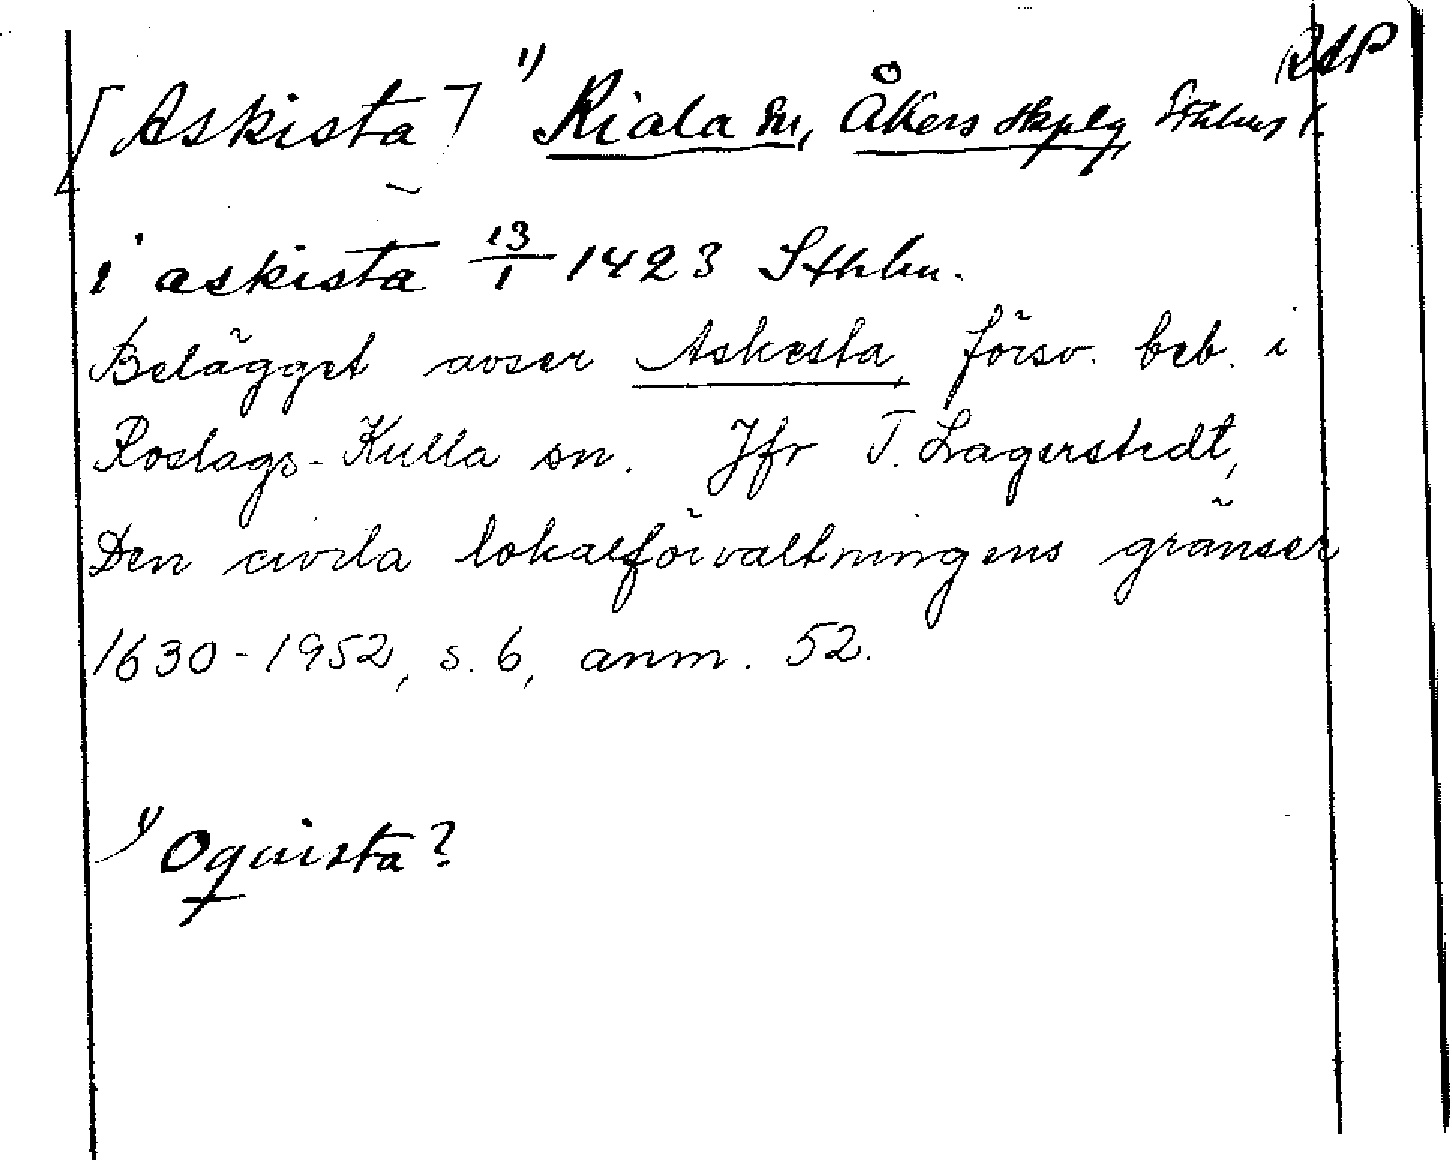 RAP
[Askista] 1) Riala sn, Åkers skplg, Sthlms l.
i askista 13/1 1423 Sthlm.
Belägget avser Askesta, försv. beb. i
Roslags-Kulla sn. Jfr T. Lagerstedt,
Den civila lokalförvaltningens gränser
1630-1952, s. 6, anm. 52.
1) Oquista?